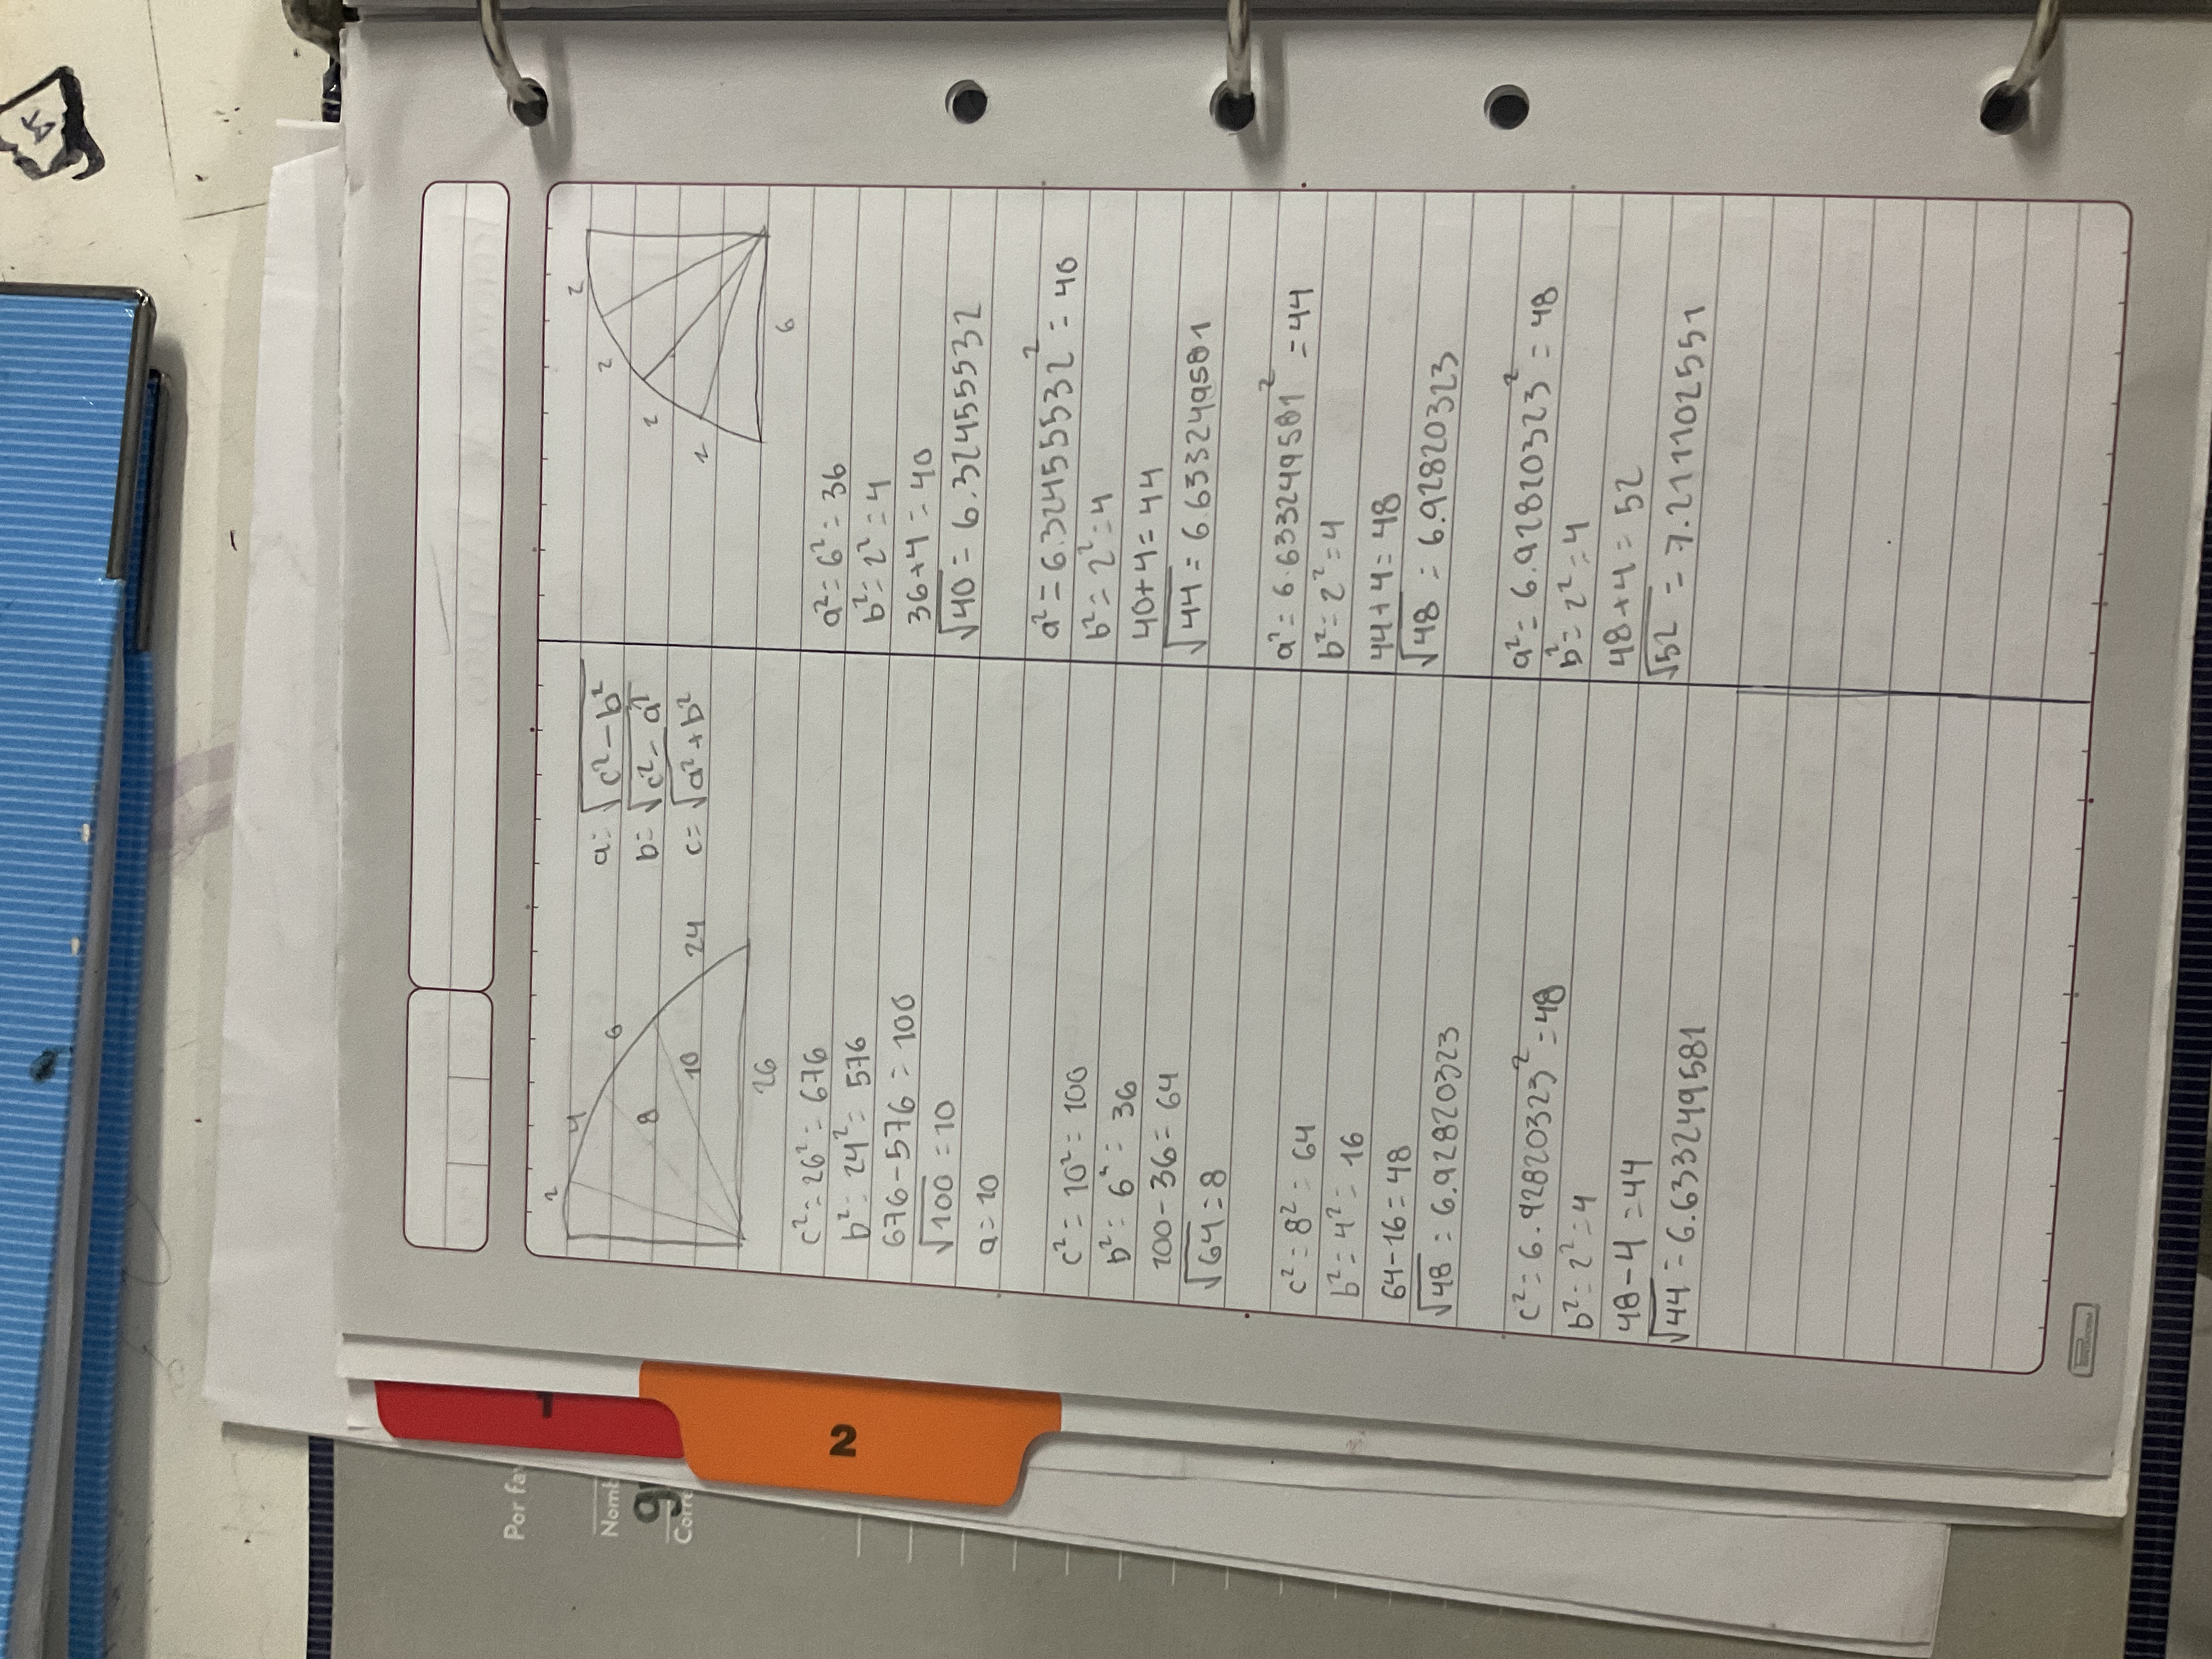 2
4
6
8
10
24
26
a=√c²-b²
b=√c²-a²
c=√a²+b²
c²=26²=676
b²=24²=576
676-576=100
√100=10
a=10
c²=10²=100
b²=6²=36
100-36=64
√64=8
c²=8²=64
b²=4²=16
64-16=48
√48=6.92820323
c²=6.92820323²=48
b²=2²=4
48-4=44
√44=6.633249581
2
2
2
2
6
a²=6²=36
b²=2²=4
36+4=40
√40=6.32455532
a²=6.32455532²=40
b²=2²=4
40+4=44
√44=6.633249581
a²=6.633249581²=44
b²=2²=4
44+4=48
√48=6.92820323
a²=6.92820323²=48
b²=2²=4
48+4=52
√52=7.211102551
1
2
Por fa
Nomb